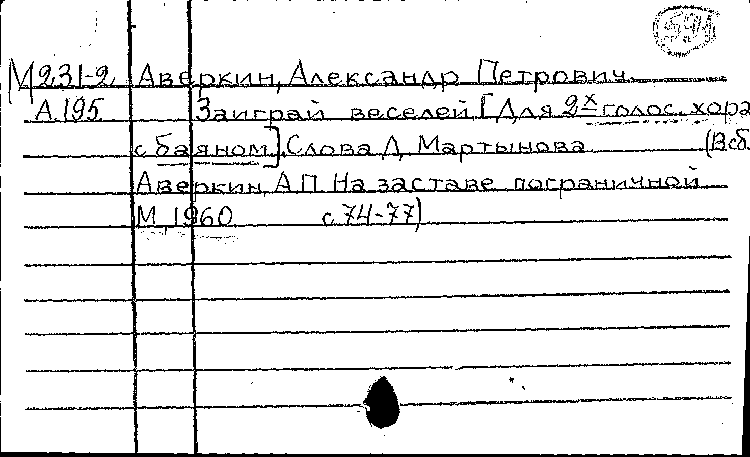 М231-2 Аверкин, Александр Петрович.
А195 Заиграй веселей. [Для 2х голос. хора
с баяном]. Слова Д. Мартынова (В сб.
Аверкин, А.П. На заставе пограничной
М., 1960 с. 74-77)